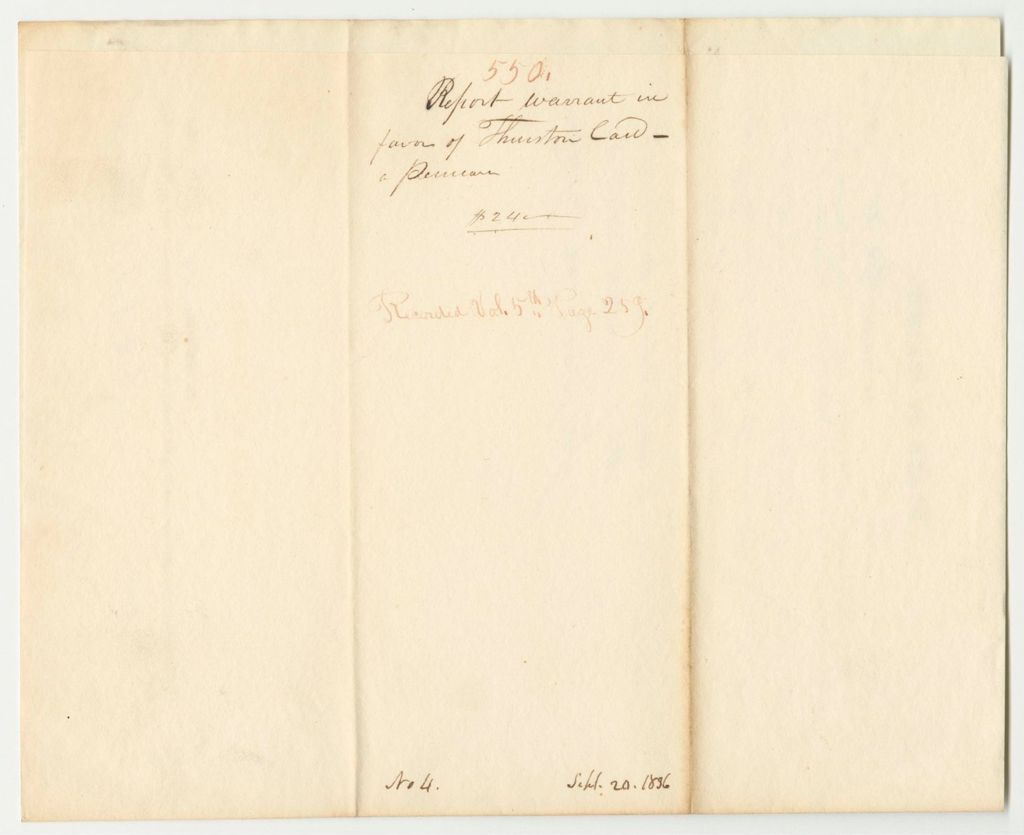 550.
Report warrant in
favor of Thurston Card –
a Pensioner
$24
Recorded Vol. 5th Page 259.
No 4. Sept. 20. 1836